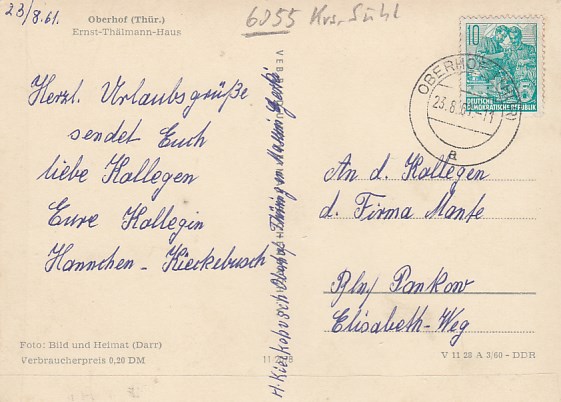 23/8.61.
Oberhof (Thür.)
Ernst-Thälmann-Haus
6055 Krs. Suhl
Herzl. Urlaubsgrüße
sendet Euch
liebe Kollegen
Eure Kollegin
Hannchen - Kieckebusch
Foto: Bild und Heimat (Darr)
Verbraucherpreis 0,20 DM
VEB
H. Kieckebusch Oberhof Thüring
10
DEUTSCHE
DEMOKRATISCHE REPUBLIK
OBERHOF (THÜR)
23.8.61.-11
a
An d. Kollegen
d. Firma Mante
Bln/ Pankow
Elisabeth-Weg
V 11 28 A 3/60 - DDR